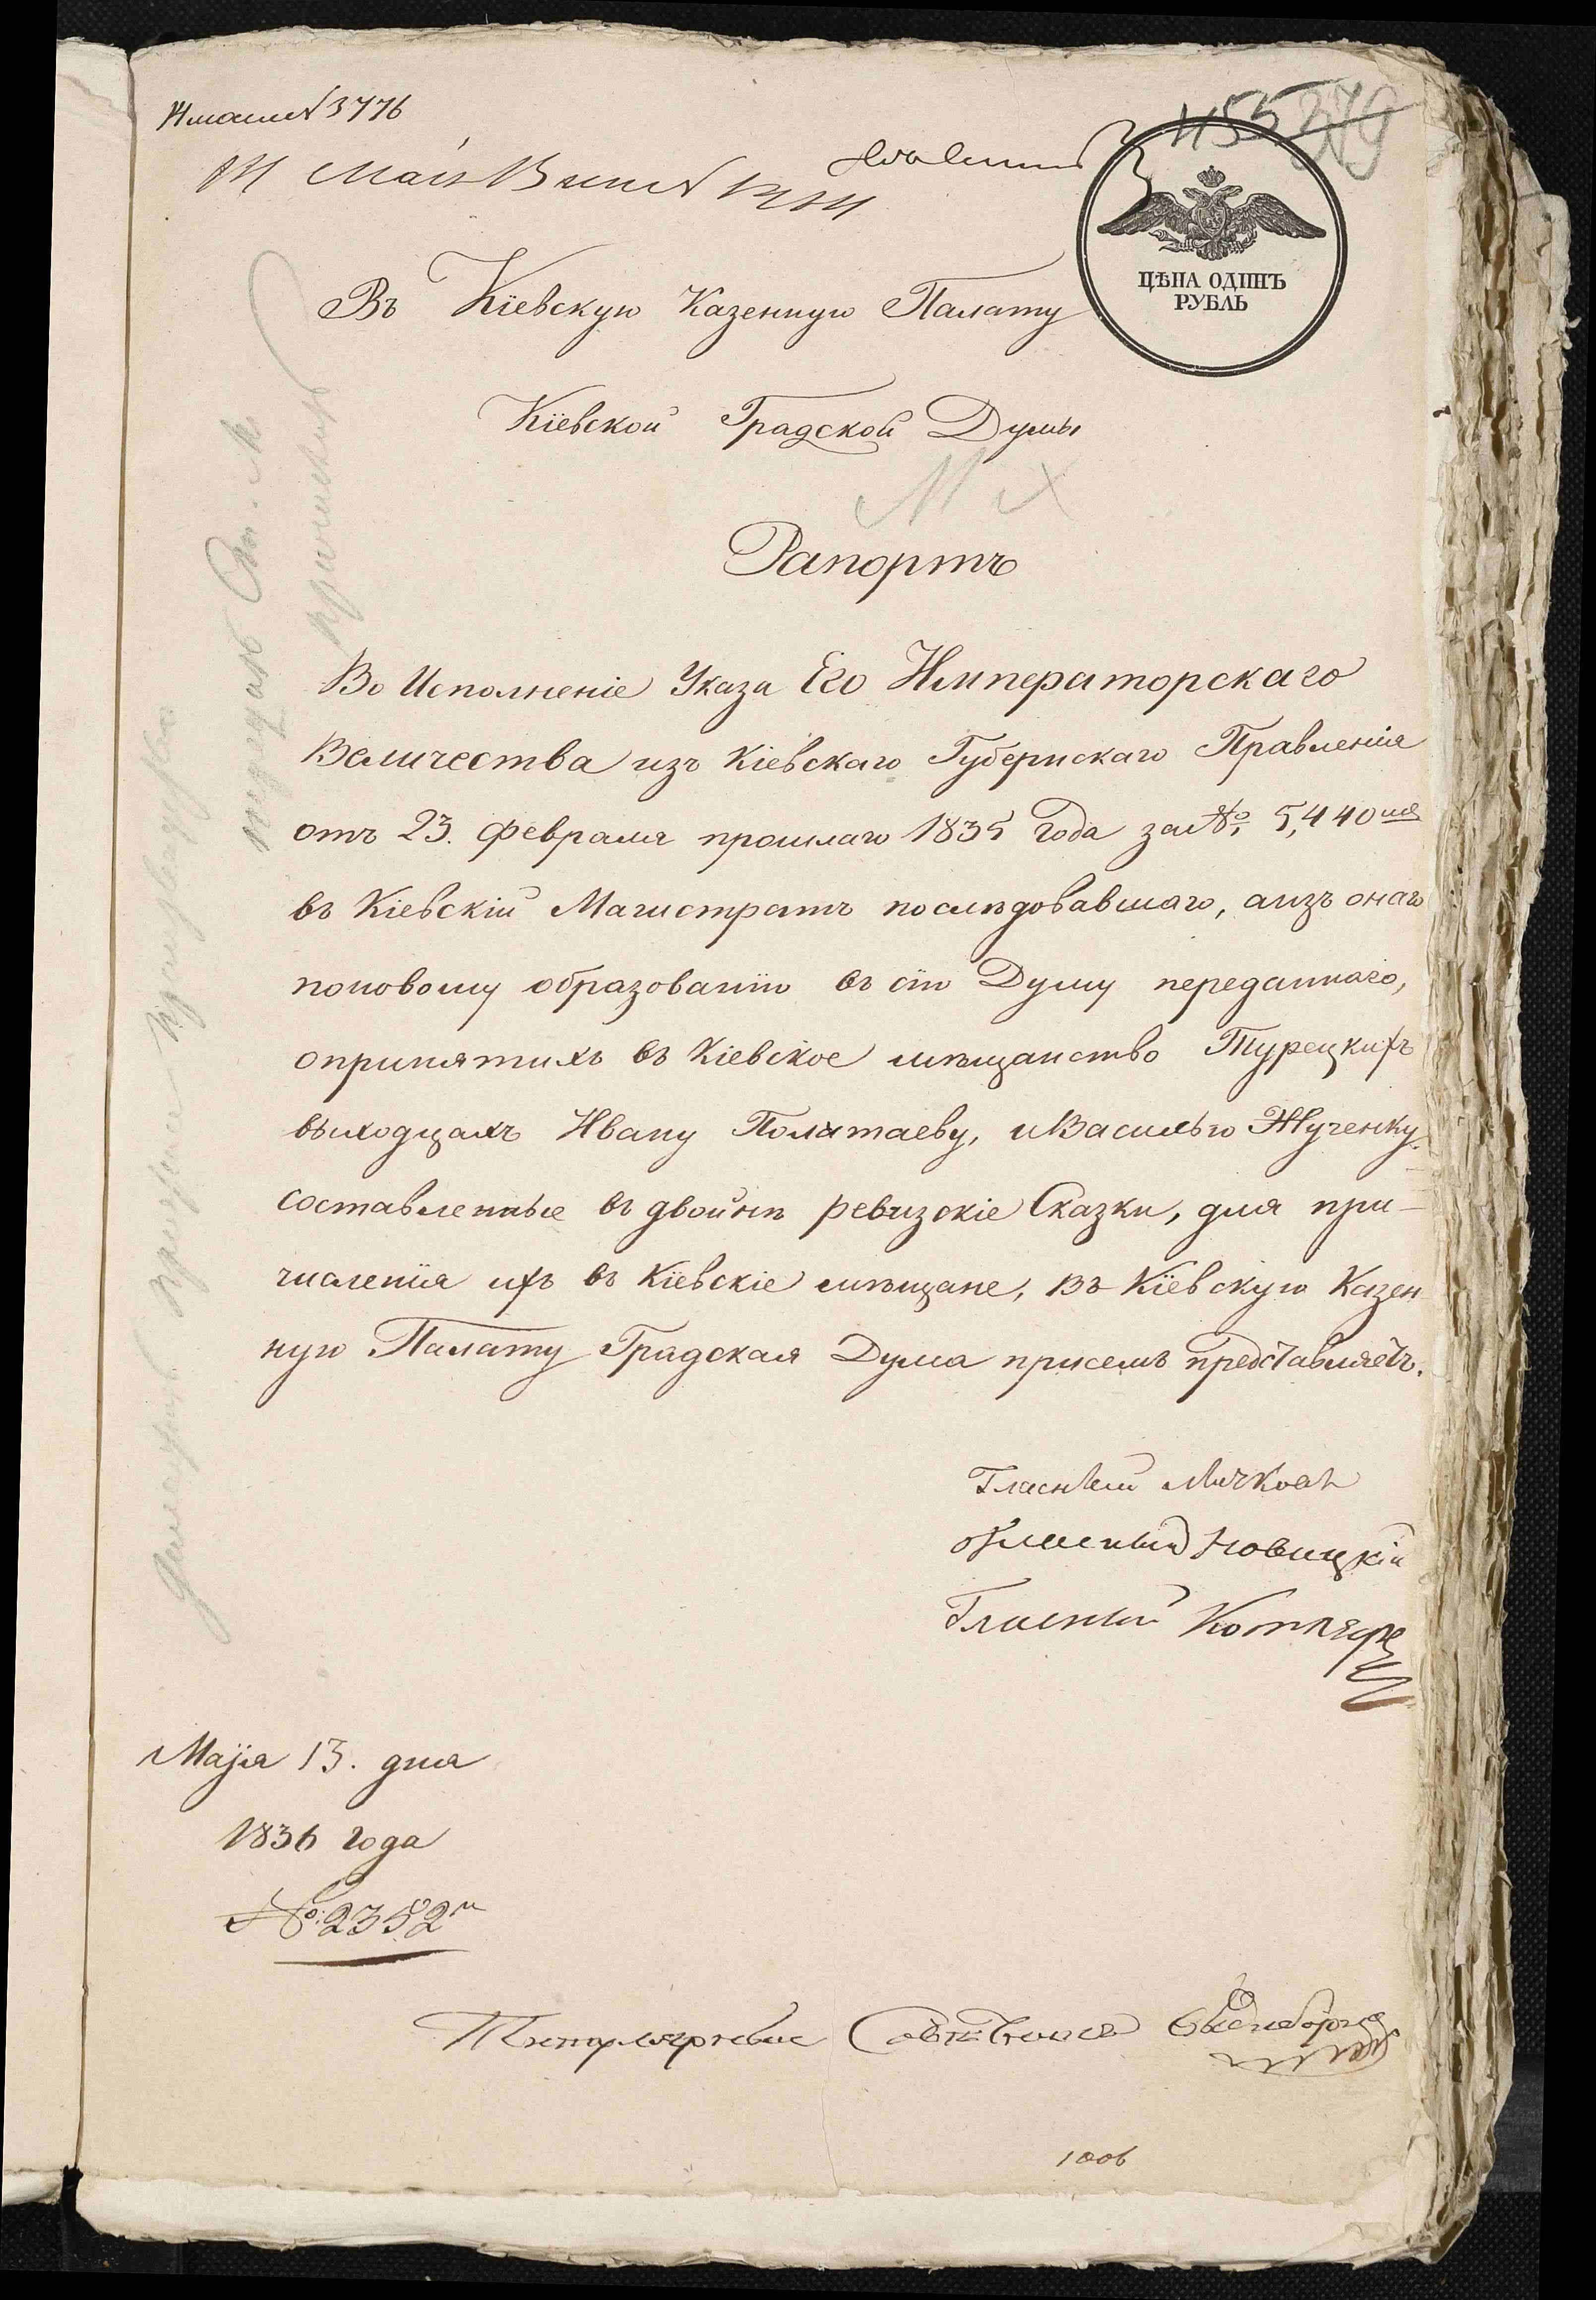 № 3776
455 379
ЦѢНА ОДИНЪ
РУБЛЬ
Въ Кіевскую Казенную Палату
Кіевской Градской Думы
Рапортъ
Во Исполненіе Указа Его Императорскаго
Величества изъ Кіевскаго Губернскаго Правленія
отъ 23. февраля прошлаго 1835 года за №: 5,440мъ
въ Кіевскій Магистратъ последовавшаго, аизъ онаго
поновому образованію въ сію Думу переданнаго,
опринятихъ въ Кіевское мѣщанство Турецкихъ
выходцахъ Ивану Полатаеву, иВасилью Жученку.
составленные въ двойнѣ ревизскіе Сказки, для при-
численія ихъ въ Кіевскіе мѣщане, въ Кіевскую Казен
ную Палату Градская Дума присемъ представляетъ.
Гласный
Гласный Новицкій
Гласный Котляръ
Маія 13. дня
1836 года
№: 2352
1006